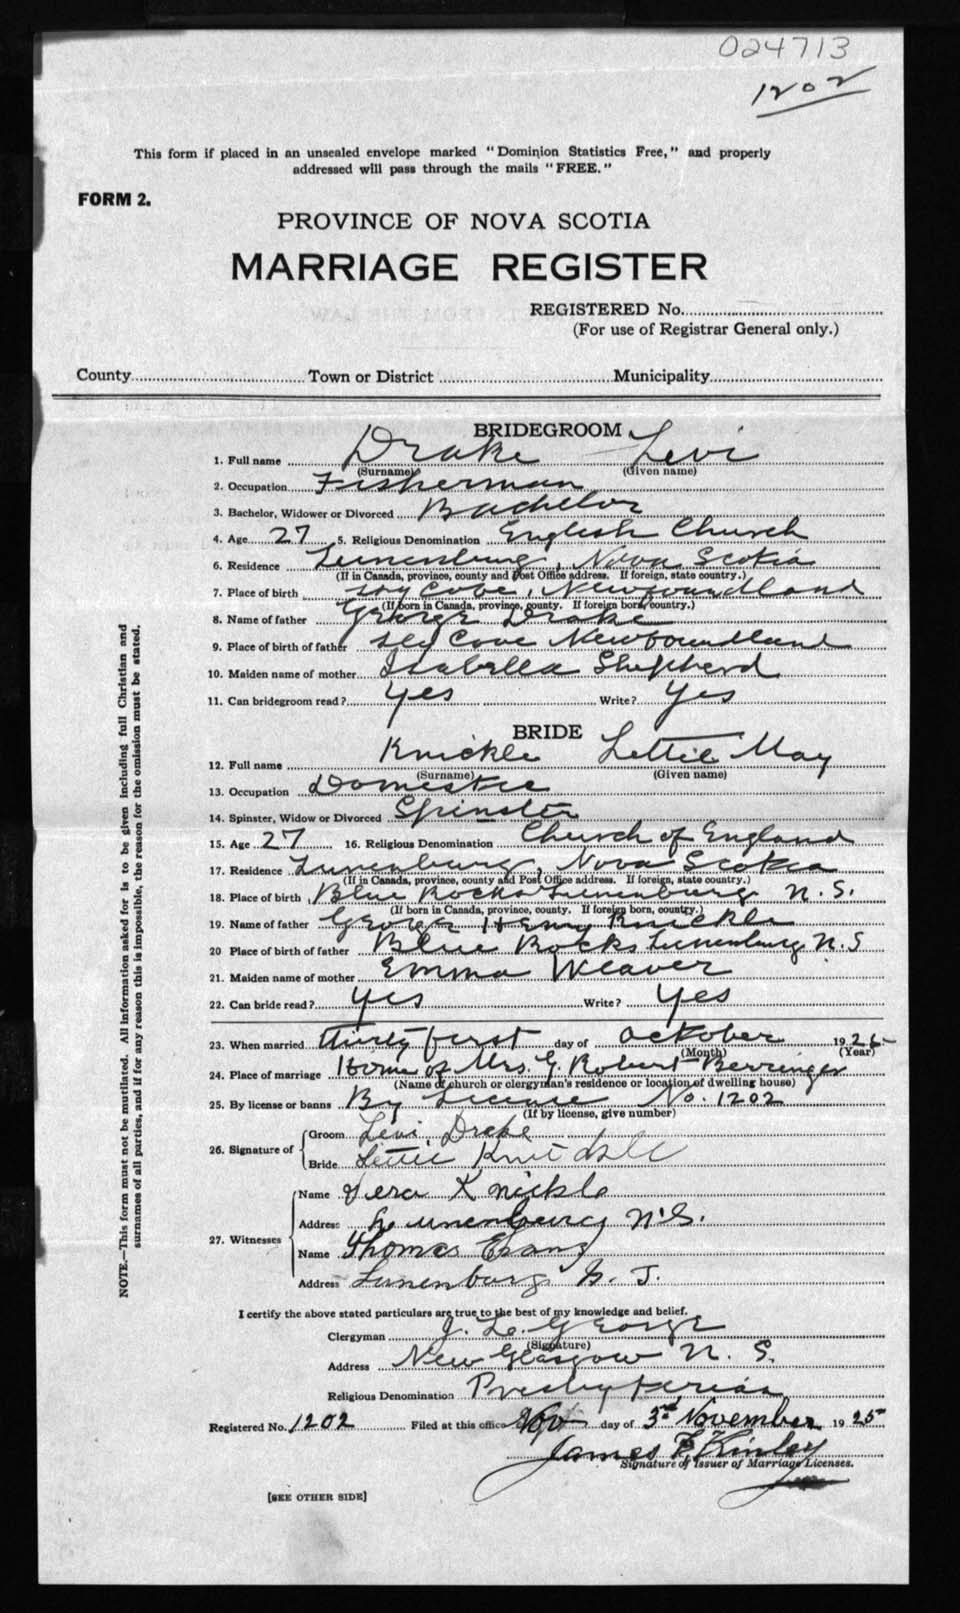 024713
1202
This form if placed in an unsealed envelope marked "Dominion Statistics Free," and properly
addressed will pass through the mails "FREE."
FORM 2.
PROVINCE OF NOVA SCOTIA
MARRIAGE REGISTER
REGISTERED No.
(For use of Registrar General only.)
County Town or District Municipality
BRIDEGROOM
1. Full name Drake Levi
(Surname) (Given name)
2. Occupation Fisherman
3. Bachelor, Widower or Divorced Bachelor
4. Age 27 5. Religious Denomination English Church
6. Residence Lunenburg, Nova Scotia
(If in Canada, province, county and Post Office address. If foreign, state country.)
7. Place of birth Cove, Newfoundland
(If born in Canada, province, county. If foreign born, country.)
8. Name of father George Drake
9. Place of birth of father Cove Newfoundland
10. Maiden name of mother Isabella Shepherd
11. Can bridegroom read? yes Write? Yes
BRIDE
12. Full name Knickle Lettie May
(Surname) (Given name)
13. Occupation Domestic
14. Spinster, Widow or Divorced Spinster
15. Age 27 16. Religious Denomination Church of England
17. Residence Lunenburg, Nova Scotia
(If in Canada, province, county and Post Office address. If foreign, state country.)
18. Place of birth Blue Rocks Lunenburg N.S.
(If born in Canada, province, county. If foreign born, country.)
19. Name of father George Henry Knickle
20 Place of birth of father Blue Rocks Lunenburg N.S
21. Maiden name of mother Emma Weaver
22. Can bride read? yes Write? Yes
23. When married thirty first day of October 1925
(Month) (Year)
24. Place of marriage Home of Mrs. G. Robert Berringer
(Name of church or clergyman's residence or location of dwelling house)
25. By license or banns By License No. 1202
(If by license, give number)
26. Signature of Groom Levi Drake
Bride Lettie Knickle
27. Witnesses Name Vera Knickle
Address Lunenburg N.S.
Name Thomas Evans
Address Lunenburg N.S.
I certify the above stated particulars are true to the best of my knowledge and belief.
Clergyman J. Le. George
(Signature)
Address New Glasgow N. S.
Religious Denomination Presbyterian
Registered No. 1202 Filed at this office day of 3rd November 1925
James F. Kinley
Signature of Issuer of Marriage Licenses.
[SEE OTHER SIDE]
NOTE.—This form must not be mutilated. All information asked for is to be given including full Christian and
surnames of all parties, and if for any reason this is impossible, the reason for the omission must be stated.